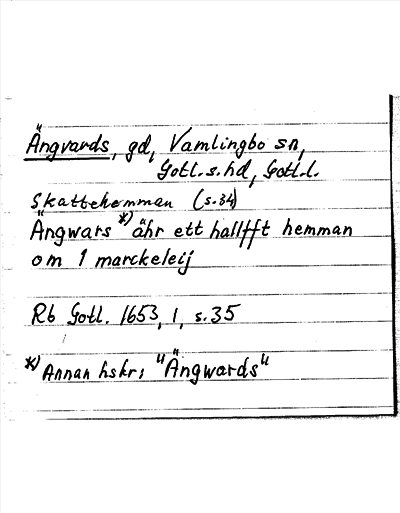 Ängvards, gd, Vamlingbo sn,
Gotl.s.hd, Gotl.l.
Skattehemman (s.34)
Ängwars *) ähr ett hallfft hemman
om 1 marckeleij
Rb Gotl. 1653, 1, s.35
*) Annan hskr: "Ängwards"